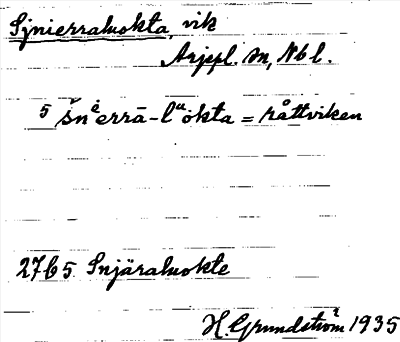 Sjnierraluokta, vik
Arjepl. sn, Nbl.
5 šnᵉ̄errā-lᵘokta = råttviken
2765 Snjäraluokte
H. Grundström 1935